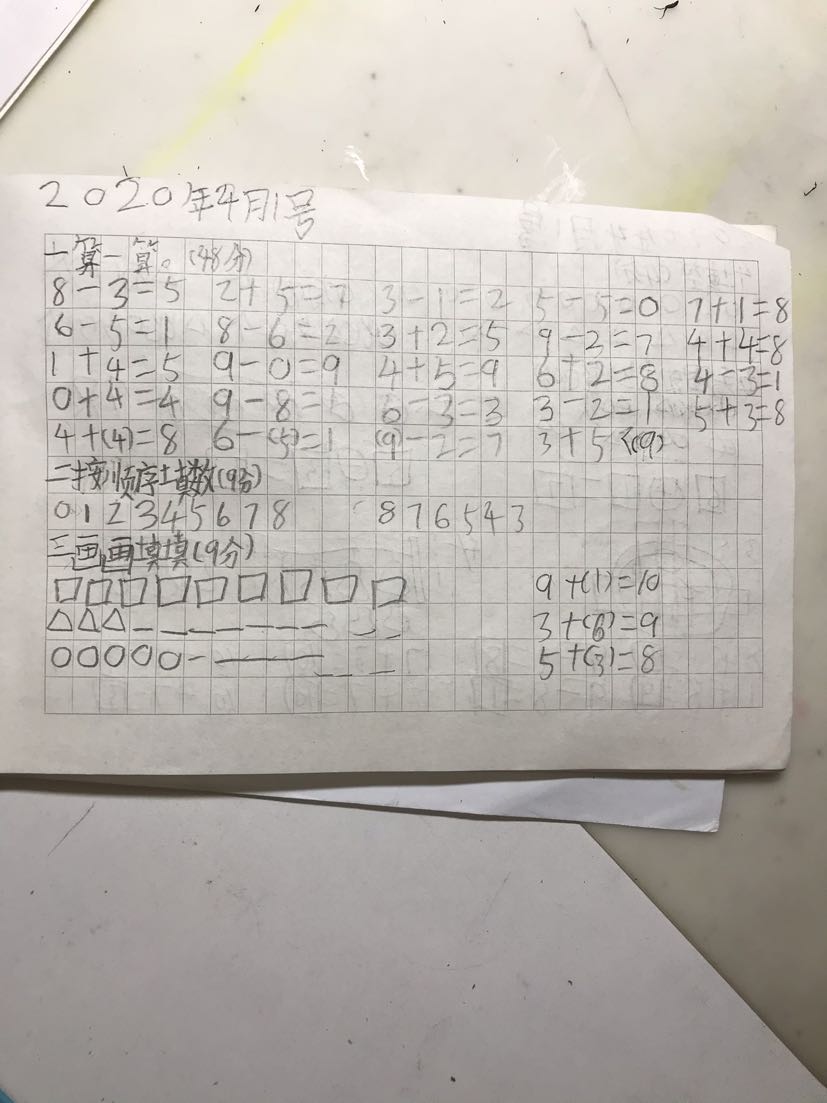 2020年4月1号
一算一算。(48分)
8-3=5 2+5=7 3-1=2 5-5=0 7+1=8
6-5=1 8-6=2 3+2=5 9-2=7 4+4=8
1+4=5 9-0=9 4+5=9 6+2=8 4-3=1
0+4=4 9-8=1 6-3=3 3-2=1 5+3=8
4+(4)=8 6-(5)=1 (9)-2=7 3+5<(9)
二按顺序填数(9分)
0 1 2 3 4 5 6 7 8 8 7 6 5 4 3
三画画填填(9分)
9+(1)=10
3+(6)=9
5+(3)=8